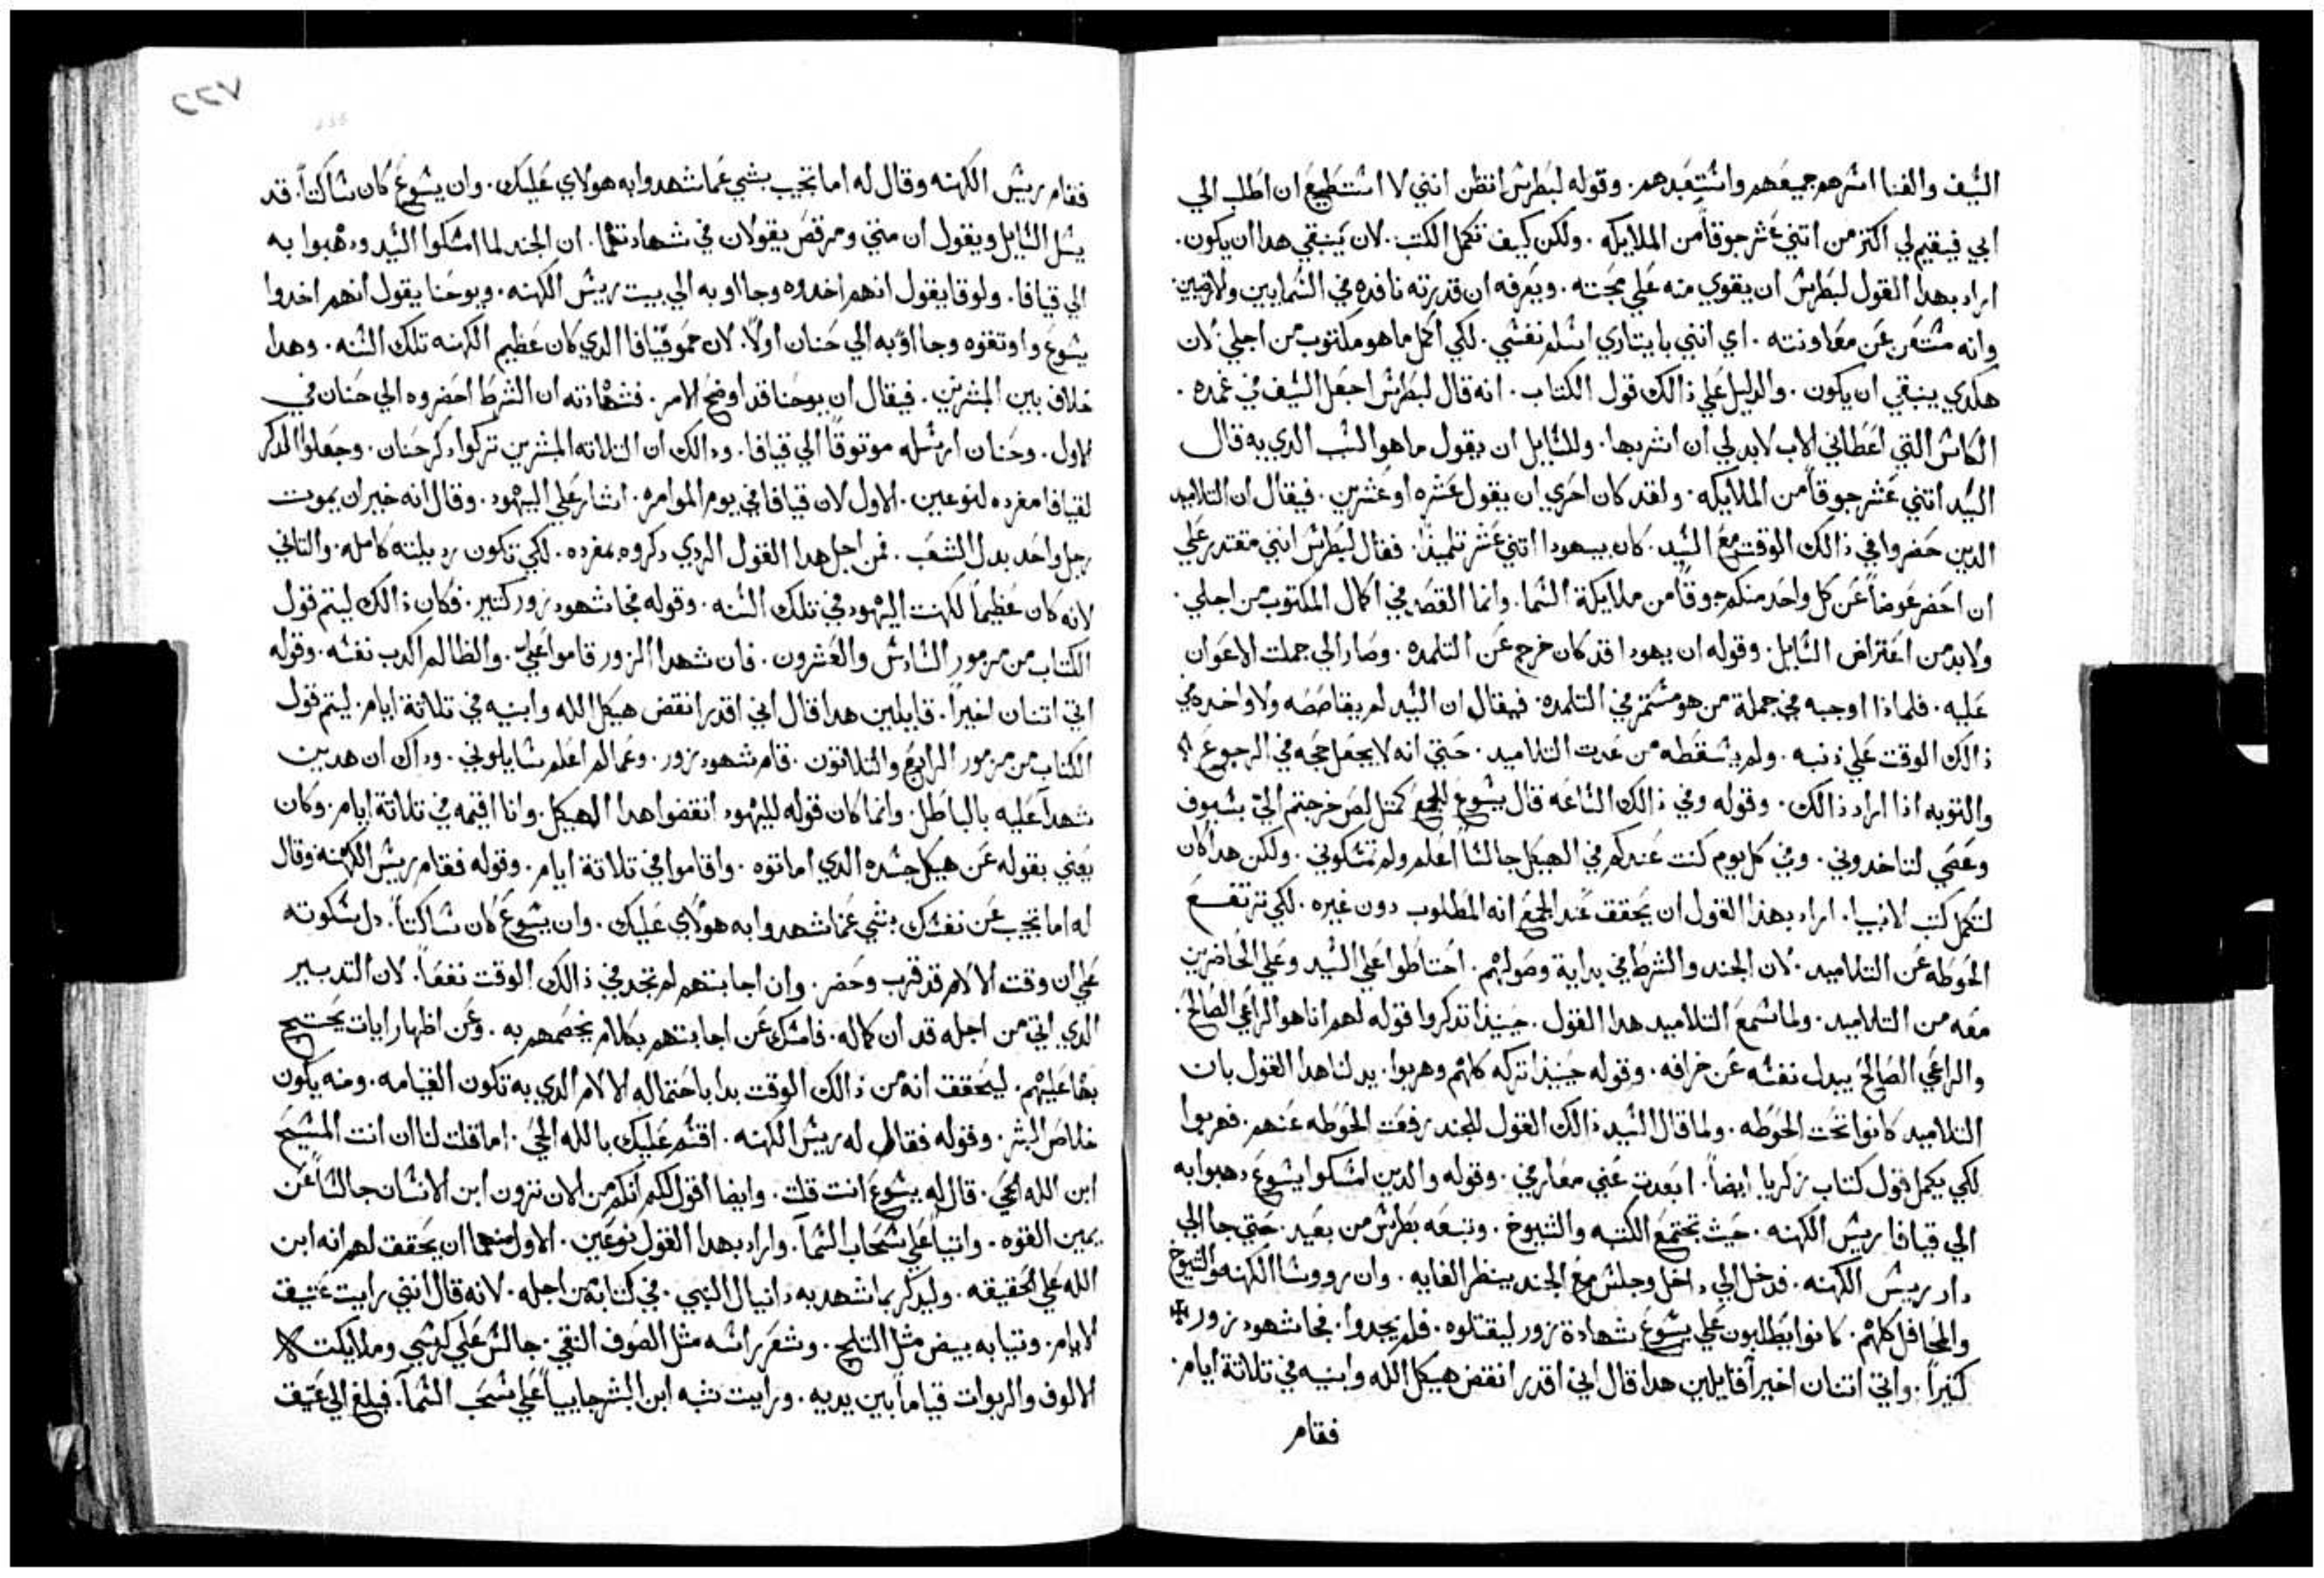 السيف والفنا اسرهم جميعهم واستعبدهم. وقوله لبطرس اتظن انني لا استطيع ان اطلب الي
ابي فيقيم لي اكتر من اتني عشر جوقاً من الملايكه. ولكن كيف تكمل الكتب. لان ينبقي هدا ان يكون.
اراد بهدا القول لبطرس ان يقوي منه علي محبته. ويعرفه ان قدرته نافده في السمايين والارضيين
وانه مستغن عن معاونته. اي انني بايتاري اسلم نفسي. لكي اكمل ما هو مكتوب من اجلي لان
هكدي ينبقي ان يكون. والدليل علي ذالك قول الكتاب. انه قال لبطرس اجعل السيف في غمده.
الكاس التي اعطاني الاب لابد لي ان اشربها. وللسايل ان يقول ما هو السبب الدي به قال
السيد اتني عشر جوقاً من الملايكه. ولقد كان احري ان يقول عشره او عشرين. فيقال ان التلاميد
الدين حضروا في ذالك الوقت مع السيد. كان بيهودا اتني عشر تلميذاً. فقال لبطرس انني مقتدر علي
ان احضر عوضاً عن كل واحد منكم جوقاً من ملايكة السما. وانما القصد في اكمال المكتوب من اجلي.
ولابد من اعتراض السايل. وقوله ان يهودا قد كان خرج عن التلمده. وصار الي جملت الاعوان
عليه. فلمادا اوجبه في جملة من هو مستمر في التلمده. فيقال ان السيد لم يقاصصه ولا واخده في
ذالك الوقت علي ذنبه. ولم يسقطه من عدت التلاميد. حتي انه لا يجعل حجه في الرجوع
والتوبه اذا اراد ذالك. وقوله وفي ذالك الساعه قال يسوع للجمع كمتل لص خرجتم الي بسيوف
وعصي لتاخدوني. وفي كل يوم كنت عندكم في الهيكل جالساً اعلم ولم تمسكوني. ولكن هدا كان
لتكمل كتب الانبيا. اراد بهذا القول ان يحقق عند الجمع انه المطلوب دون غيره. لكي ترتفع
الحوطه عن التلاميد. لان الجند والشرط في بداية وصولهم. احتاطوا علي السيد وعلي الحاضرين
معه من التلاميد. ولما سمع التلاميد هدا القول. حينيذ اتدكروا قوله لهم انا هو الراعي الصالح.
والراعي الصالح يبدل نفسه عن خرافه. وقوله حينيذ اتركه كلهم وهربوا. يدلنا هدا القول بان
التلاميد كانوا تحت الحوطه. ولما قال السيد ذالك القول للجند رفعت الحوطه عنهم. فهربوا
لكي يكمل قول كتاب زكريا ايضاً. ابعدت عني معارفي. وقوله والدين امسكوا يسوع دهبوا به
الي قيافا ريس الكهنه. حيث تجتمع الكتبه والشيوخ. وتبعه بطرس من بعيد. حتي جا الي
دار ريس الكهنه. فدخل الي داخل وجلس مع الجند ينظر الغايه. وان رووسا الكهنه والشيوخ
والمحافل كلهم. كانوا يطلبون علي يسوع شهادة زور ليقتلوه. فلم يجدوا. فجا شهود زور
كتيراً. واتي اتنان اخيراً قايلين هدا قال اني اقدر انقض هيكل الله وابنيه في تلاتة ايام.
فقام
٢٢٧
فقام ريس الكهنه وقال له اما تجيب بشي عما شهدوا به هولاي عليك. وان يسوع كان ساكتاً. قد
يسل السايل ويقول ان متي ومرقص يقولان في شهادتهما. ان الجند لما امسكوا السيد ودهبوا به
الي قيافا. ولوقا يقول انهم اخدوه وجااو به الي بيت ريس الكهنه. ويوحنا يقول انهم اخدوا
يسوع واوتقوه وجااو به الي حنان اولاً. لان حمو قيافا الدي كان عظيم الكهنه تلك السنه. وهدا
خلاف بين المبشرين. فيقال ان يوحنا قد اوضح الامر. فشهادته ان الشرط احضروه الي حنان في
الاول. وحنان ارسله موتوقاً الي قيافا. ودالك ان التلاته المبشرين تركوا دكر حنان. وجعلوا الدكر
لقيافا مفرده لنوعين. الاول لان قيافا في يوم الموامره. اشار علي اليهود. وقال انه خير ان يموت
رجل واحد بدل الشعب. فمن اجل هدا القول الردي دكروه بمفرده. لكي تكون رديلته كامله. والتاني
لانه كان عظيماً لكهنت اليهود في تلك السنه. وقوله فجا شهود زور كتير. فكان ذالك ليتم قول
الكتاب من مزمور السادس والعشرون. فان شهدا الزور قاموا علي. والظالم اكدب نفسه. وقوله
اتي اتنان اخيراً. قايلين هدا قال اني اقدر انقض هيكل الله وابنيه في تلاتة ايام. ليتم قول
الكتاب من مزمور الرابع والتلاتون. قام شهود زور. وعما لم اعلم سايلوني. ودالك ان هدين
شهدا عليه بالباطل. وانما كان قوله لليهود انقضوا هدا الهيكل. وانا اقيمه في تلاتة ايام. وكان
يعني بقوله عن هيكل جسده الدي اماتوه. واقاموا في تلاتة ايام. وقوله فقام ريس الكهنه وقال
له اما تجيب عن نفسك بشي عما شهدوا به هولاي عليك. وان يسوع كان ساكتاً. دل بسكوته
علي ان وقت الالام قد قرب وحضر. وان اجابتهم لم تجد في ذالك الوقت نفعاً. لان التدبير
الدي اتي من اجله قد ان كماله. فامسك عن اجابتهم بكلام يخصمهم به. وعن اظهار ايات يحتج
بها عليهم. ليحقق انه من ذالك الوقت بدا باحتماله الالام الدي به تكون القيامه. ومنه يكون
خلاص البشر. وقوله فقال له ريس الكهنه. اقسم عليك بالله الحي. اما قلت لنا ان انت المسيح
ابن الله الحي. قال له يسوع انت قلت. وايضا اقول لكم انكم من الان ترون ابن الانسان جالساً عن
يمين القوه. واتياً علي سحاب السما. واراد بهدا القول نوعين. الاول منهما ان يحقق لهم انه ابن
الله علي الحقيقه. وليدكر بما شهد به دانيال النبي. في كتابه من اجله. لانه قال انني رايت عتيق
الايام. وتيابه بيض مثل التلج. وشعر راسه مثل الصوف النقي. جالس علي كرسي وملايكت
الالوف والربوات قياماً بين يديه. ورايت شبه ابن البشر جاييا علي سحب السما. فبلغ الي عتيق